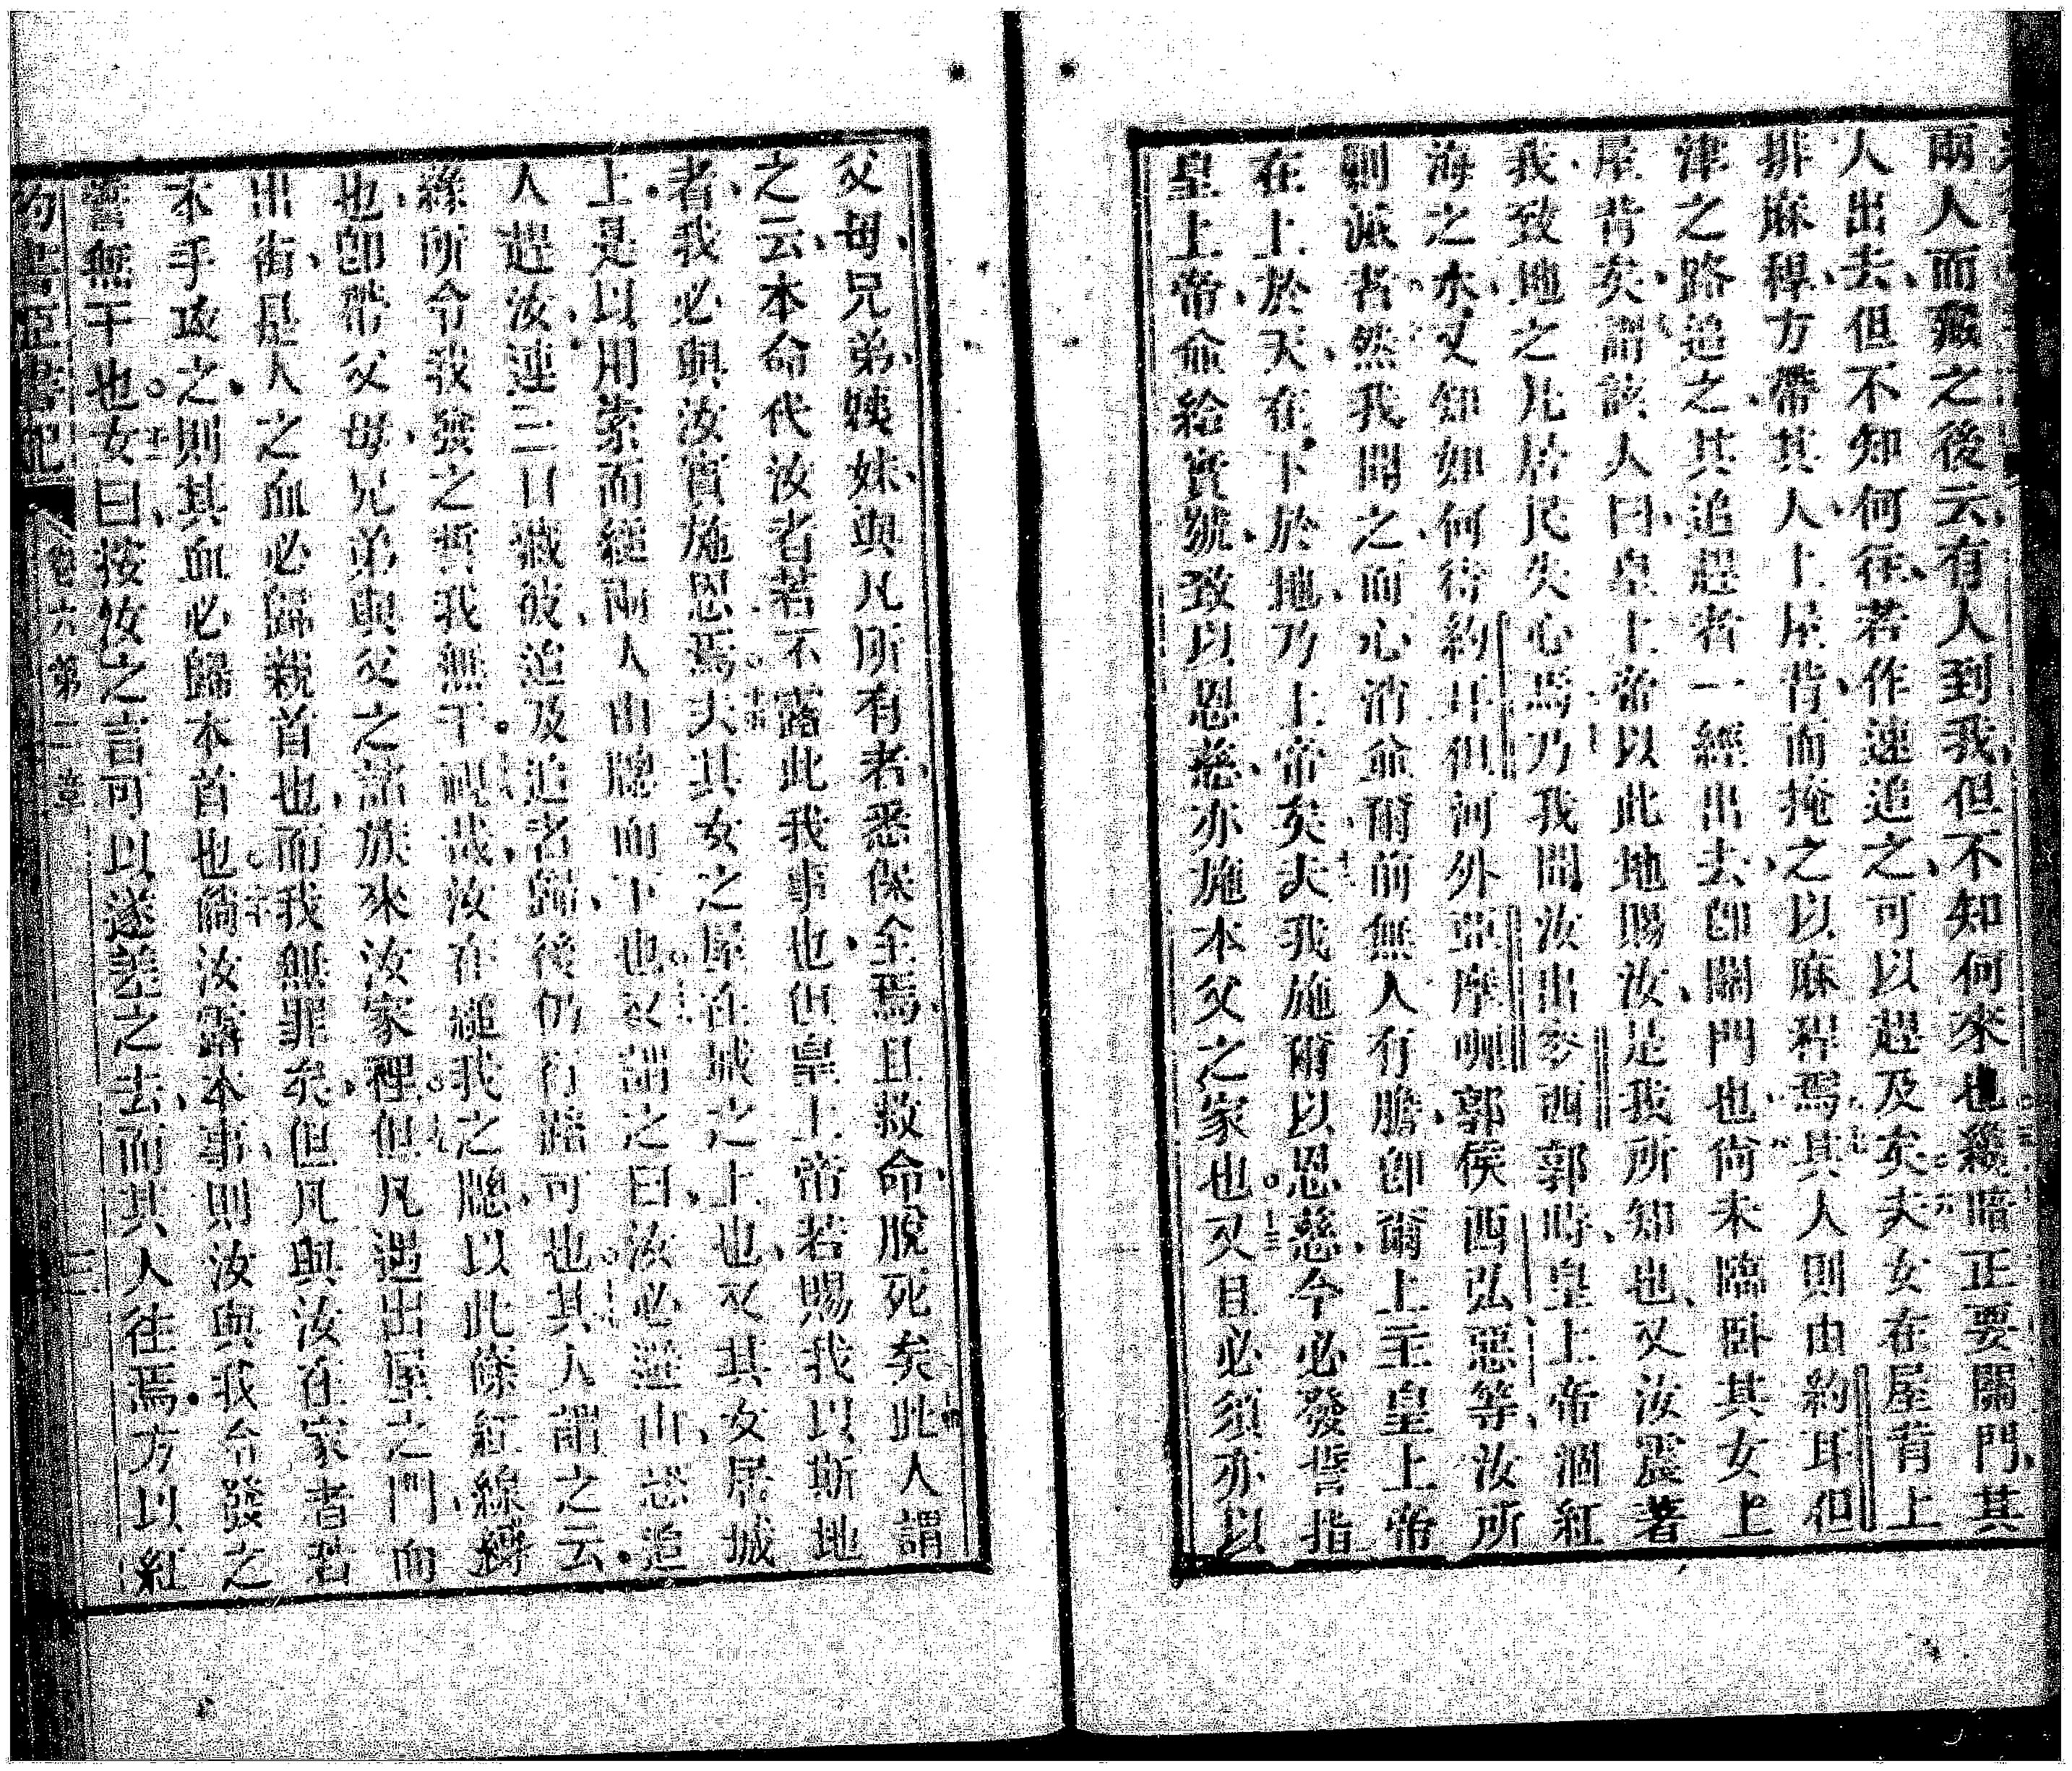 兩人而藏之後云有人到我但不知何來也纔暗正要關門其
人出去但不知何往若作速追之可以趕及矣夫女在屋背上
排麻稈方帶其人上屋背而掩之以麻稈焉其人則由約耳但
津之路追之其追趕者一經出去即關門也尙未臨臥其女上
屋背矣謂該人曰皇上帝以此地賜汝是我所知也又汝震著
我致地之凡居民失心焉乃我聞汝出麥西郭時皇上帝涸紅
海之水又知如何待約耳但河外亞摩唎郭侯西弘惡等汝所
剿滅者然我聞之而心消並爾前無人有膽即爾上主皇上帝
在上於天在下於地乃上帝矣夫我施爾以恩慈今必發誓指
皇上帝命給實號致以恩慈亦施本父之家也又且必須亦以
父母兄弟姊妹與凡所有者悉保全焉且救命脫死矣此人謂
之云本命代汝者若不露此我事也但皇上帝若賜我以斯地
者我必與汝實施恩焉夫其女之屋在城之上也又其女居城
上是以用索而縋兩人由牕而下也又謂之曰汝必逃山恐追
人趕汝連三日藏彼追及追者歸後仍行路可也其人謂之云
線所令我發之誓我無干視哉汝在縋我之牕以此條紅線縛
也即帶父母兄弟與父之諸族來汝家裡但凡邁出屋之門而
出街是人之血必歸親首也而我無罪矣但凡與汝在家者若
本手攻之則其血必歸本首也倘汝露本事則汝與我令發之
誓無干也女曰按汝之言可以遂差之去而其人往焉方以紅
約書亞書紀 卷六第二章 三